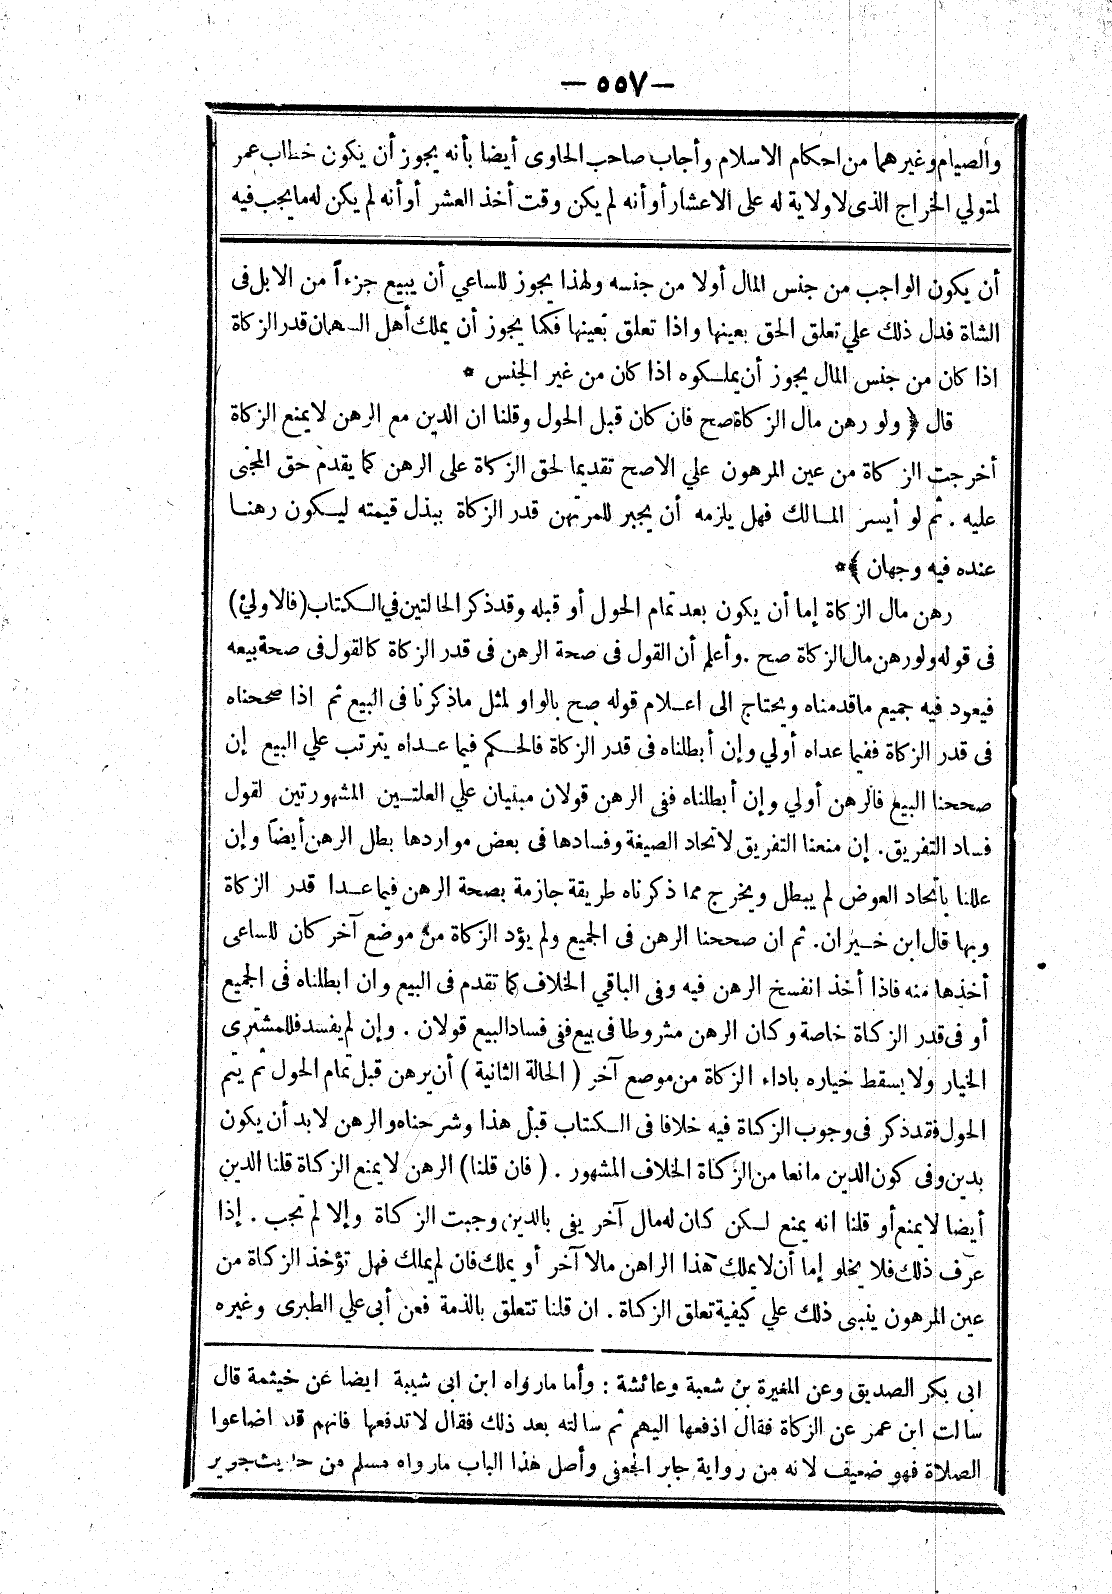 — ٥٥٧ —
والصيام وغيرهما من احكام الاسلام وأجاب صاحب الحاوى أيضا بأنه يجوز أن يكون خطاب عمر
لمتولي الخراج الذى لا ولاية له على الاعشار أو أنه لم يكن وقت أخذ العشر أو أنه لم يكن له ما يجب فيه
أن يكون الواجب من جنس المال أولا من جنسه ولهذا يجوز للساعي أن يبيع جزءاً من الابل فى
الشاة فدل ذلك علي تعلق الحق بعينها واذا تعلق بعينها فكما يجوز أن يملك أهل السهمان قدر الزكاة
اذا كان من جنس المال يجوز أن يملكوه اذا كان من غير الجنس *
قال ﴿ ولو رهن مال الزكاة صح فان كان قبل الحول وقلنا ان الدين مع الرهن لا يمنع الزكاة
أخرجت الزكاة من عين المرهون علي الاصح تقديما لحق الزكاة على الرهن كما يقدم حق المجنى
عليه . ثم لو أيسر المالك فهل يلزمه أن يجبر للمرتهن قدر الزكاة ببذل قيمته ليكون رهنا
عنده فيه وجهان ﴾ *
رهن مال الزكاة إما أن يكون بعد تمام الحول أو قبله وقد ذكر الحالتين في الكتاب (فالاولي)
فى قوله ولو رهن مال الزكاة صح . وأعلم أن القول فى صحة الرهن فى قدر الزكاة كالقول فى صحة بيعه
فيعود فيه جميع ما قدمناه ويحتاج الى اعلام قوله صح بالواو لمثل ما ذكرنا فى البيع ثم اذا صححناه
فى قدر الزكاة ففيما عداه أولي وإن أبطلناه فى قدر الزكاة فالحكم فيما عداه يترتب علي البيع إن
صححنا البيع فالرهن أولي وإن أبطلناه ففى الرهن قولان مبنيان علي العلتين المشهورتين لقول
فساد التفريق. إن منعنا التفريق لاتحاد الصيغة وفسادها فى بعض مواردها بطل الرهن أيضاً وإن
عللنا باتحاد العوض لم يبطل ويخرج مما ذكرناه طريقة جازمة بصحة الرهن فيما عدا قدر الزكاة
وبها قال ابن خيران. ثم ان صححنا الرهن فى الجميع ولم يؤد الزكاة من موضع آخر كان للساعى
أخذها منه فاذا أخذ انفسخ الرهن فيه وفى الباقي الخلاف كما تقدم فى البيع وان ابطلناه فى الجميع
أو فى قدر الزكاة خاصة وكان الرهن مشروطا فى بيع ففى فساد البيع قولان . وإن لم يفسد فللمشترى
الخيار ولا يسقط خياره باداء الزكاة من موضع آخر ( الحالة الثانية ) أن يرهن قبل تمام الحول ثم يتم
الحول فقد ذكر فى وجوب الزكاة فيه خلافا فى الكتاب قبل هذا وشرحناه والرهن لا بد أن يكون
بدين وفى كون الدين مانعا من الزكاة الخلاف المشهور . ( فان قلنا) الرهن لا يمنع الزكاة قلنا الدين
أيضا لا يمنع أو قلنا انه يمنع لكن كان له مال آخر يفى بالدين وجبت الزكاة وإلا لم تجب . إذا
عرف ذلك فلا يخلو إما أن لا يملك هذا الراهن مالا آخر أو يملك فان لم يملك فهل تؤخذ الزكاة من
عين المرهون ينبى ذلك علي كيفية تعلق الزكاة . ان قلنا تتعلق بالذمة فعن أبى علي الطبرى وغيره
ابى بكر الصديق وعن المغيرة بن شعبة وعائشة : وأما ما رواه ابن ابى شيبة ايضا عن خيثمة قال
سالت ابن عمر عن الزكاة فقال ادفعها اليهم ثم سالته بعد ذلك فقال لا تدفعها فانهم قد اضاعوا
الصلاة فهو ضعيف لانه من رواية جابر الجعفى وأصل هذا الباب ما رواه مسلم من حديث جرير